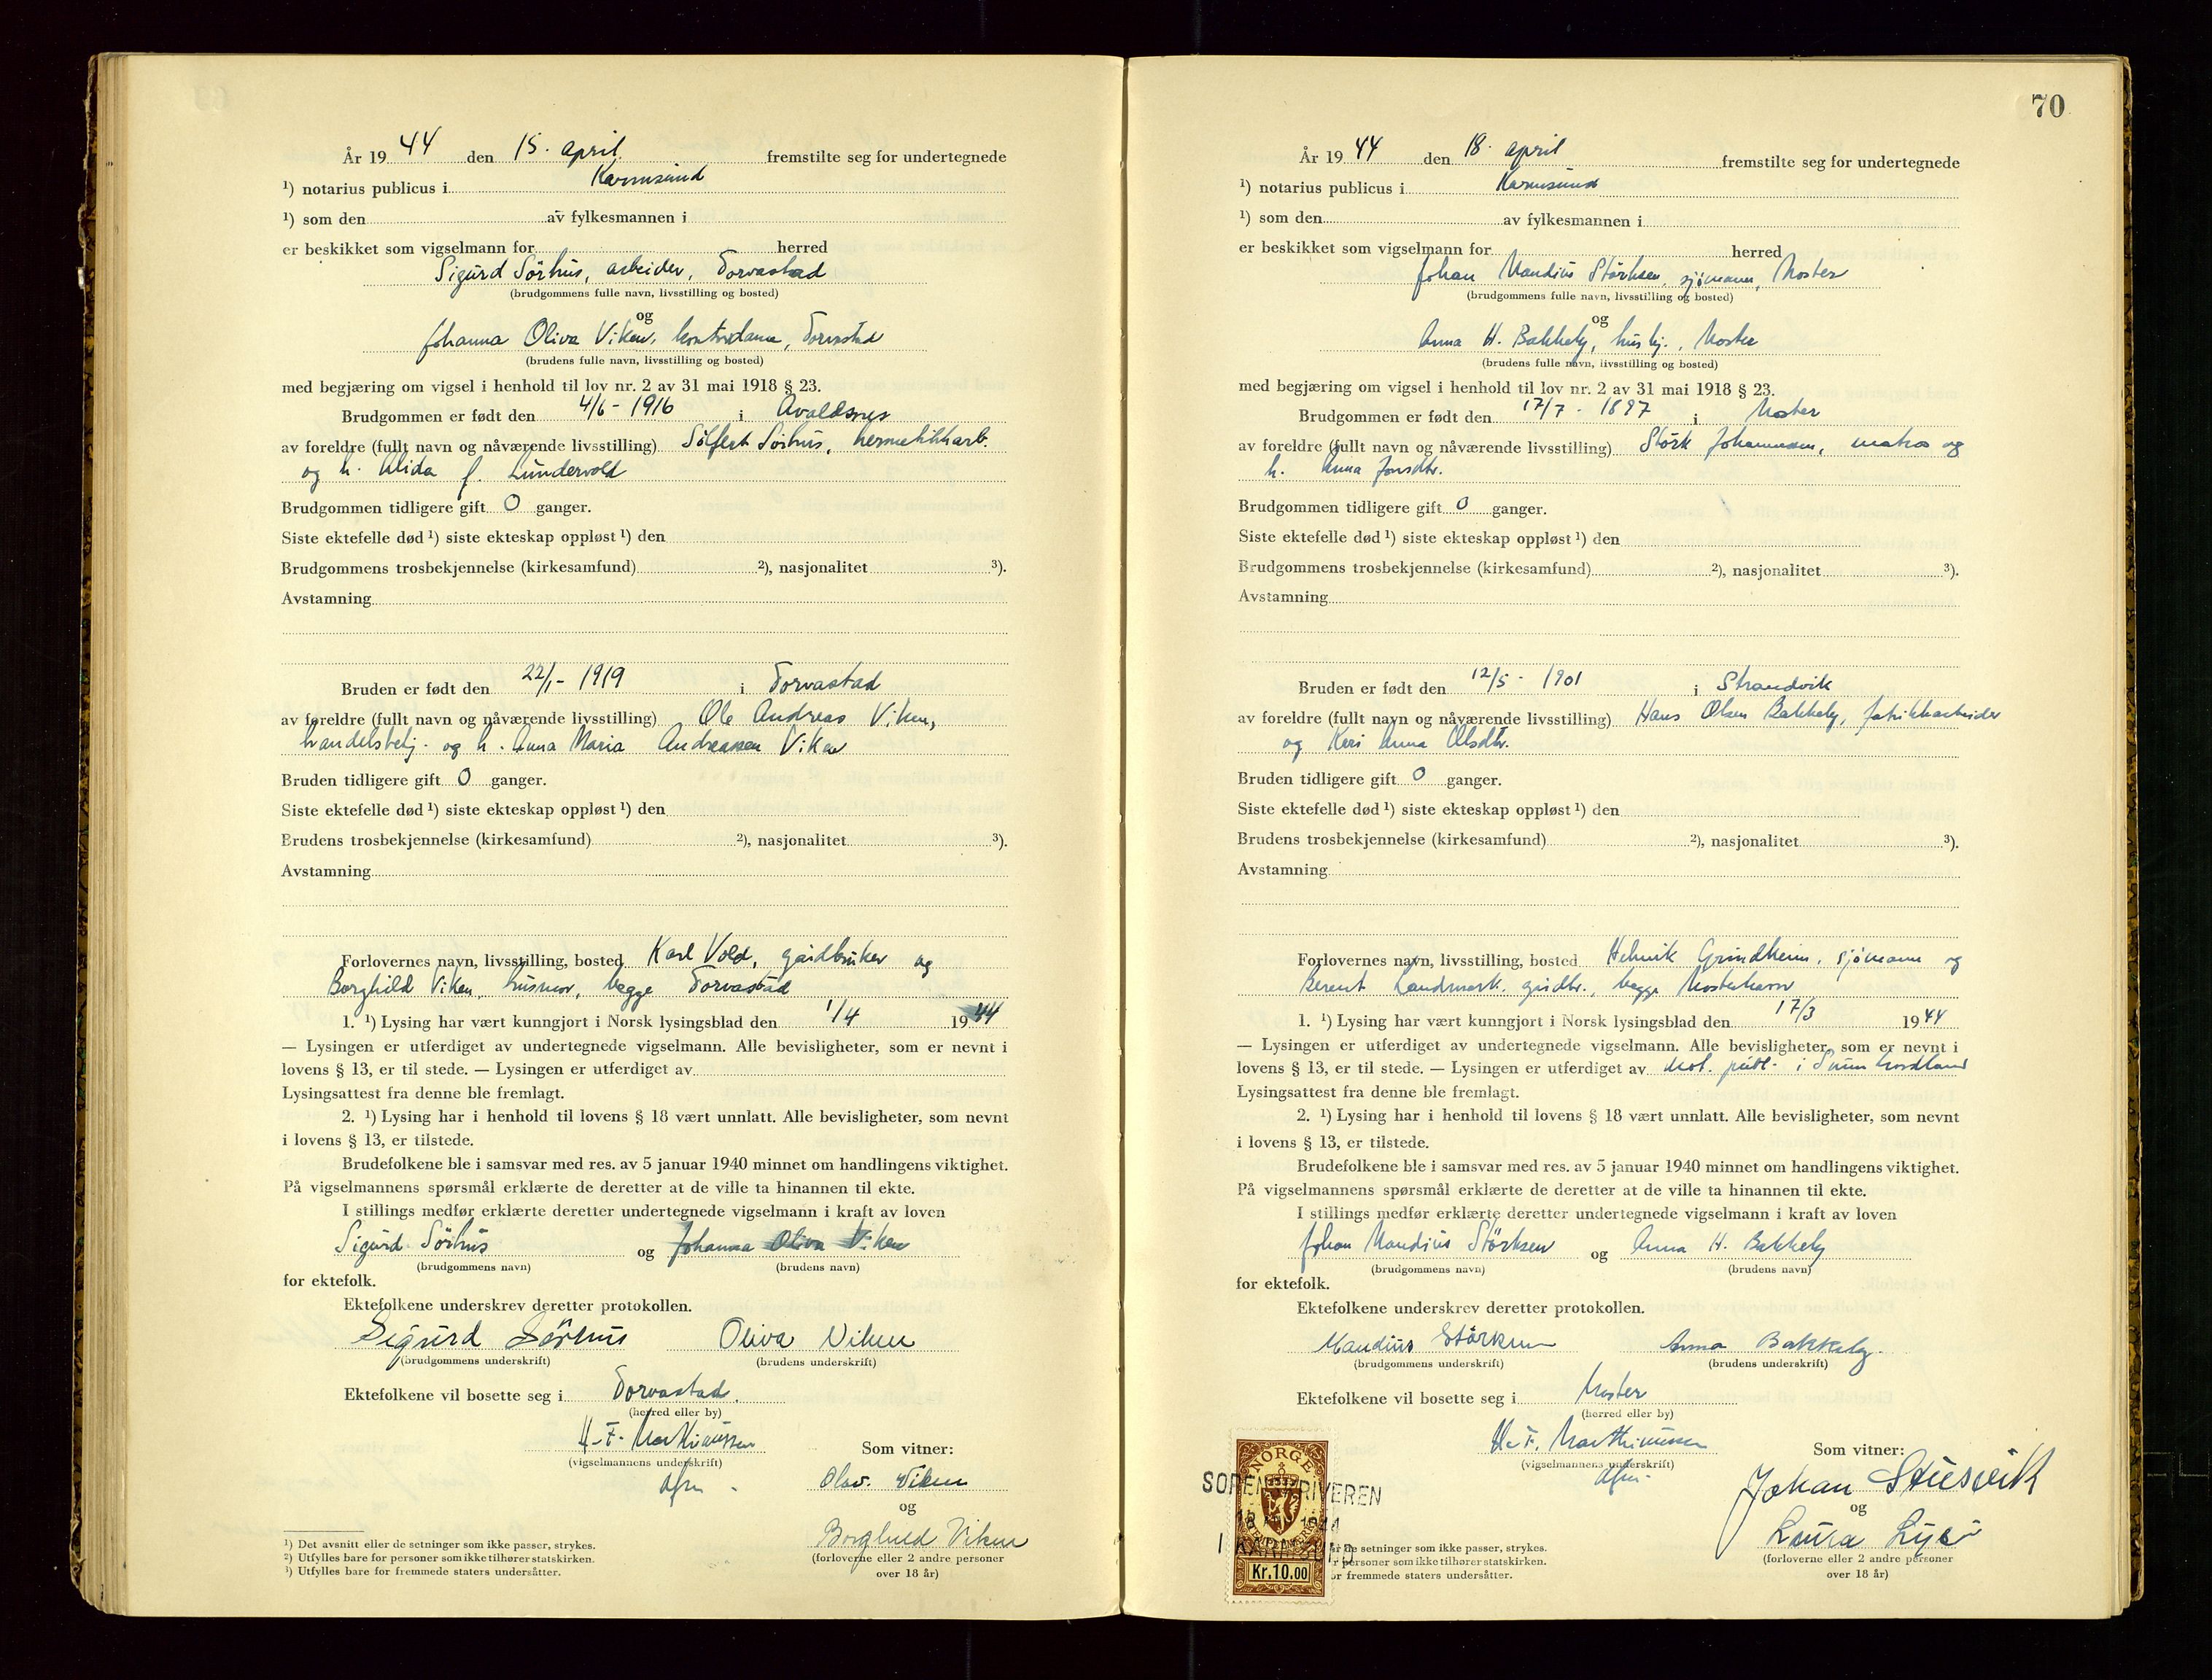 År 19 44 den 15. april fremstilte seg for undertegnede
¹) notarius publicus i Karmsund
¹) som den av fylkesmannen i
er beskikket som vigselmann for herred
Sigurd Sörhus, arbeider, Torvastad
(brudgommens fulle navn, livsstilling og bosted)
og
Johanna Oliva Viken, kontordame, Torvastad
(brudens fulle navn, livsstilling og bosted)
med begjæring om vigsel i henhold til lov nr. 2 av 31 mai 1918 § 23.
Brudgommen er født den 4/6 - 1916 i Avaldsnes
av foreldre (fullt navn og nåværende livsstilling) Sörhus, hermetikkarb.
og h. Alida f. Lundervold
Brudgommen tidligere gift 0 ganger.
Siste ektefelle død ¹) siste ekteskap oppløst ¹) den
Brudgommens trosbekjennelse (kirkesamfund) ²), nasjonalitet ³).
Avstamning
Bruden er født den 22/1 - 1919 i Torvastad
av foreldre (fullt navn og nåværende livsstilling) Ole Andreas Viken,
handelsbetj. og h. Anna Maria Andreassen Viken
Bruden tidligere gift 0 ganger.
Siste ektefelle død ¹) siste ekteskap oppløst ¹) den
Brudens trosbekjennelse (kirkesamfund) ²), nasjonalitet ³).
Avstamning
Forlovernes navn, livsstilling, bosted Karl Vold, gårdbruker og
Borghild Viken, husmor, begge Torvastad
1. ¹) Lysing har vært kunngjort i Norsk lysingsblad den 1/4 19 44
— Lysingen er utferdiget av undertegnede vigselmann. Alle bevisligheter, som er nevnt i
lovens § 13, er til stede. — Lysingen er utferdiget av
Lysingsattest fra denne ble fremlagt.
2. ¹) Lysing har i henhold til lovens § 18 vært unnlatt. Alle bevisligheter, som nevnt
i lovens § 13, er tilstede.
Brudefolkene ble i samsvar med res. av 5 januar 1940 minnet om handlingens viktighet.
På vigselmannens spørsmål erklærte de deretter at de ville ta hinannen til ekte.
I stillings medfør erklærte deretter undertegnede vigselmann i kraft av loven
Sigurd Sörhus og Johanna Oliva Viken
(brudgommens navn) (brudens navn)
for ektefolk.
Ektefolkene underskrev deretter protokollen.
Sigurd Sörhus Oliva Viken
(brudgommens underskrift) (brudens underskrift)
Ektefolkene vil bosette seg i Torvastad.
(herred eller by)
H. F. Marthinussen
(vigselmannens underskrift)
Som vitner:
Olav. Viken
og
Borghild Viken
(forloverne eller 2 andre personer
over 18 år)
¹) Det avsnitt eller de setninger som ikke passer, strykes.
²) Utfylles bare for personer som ikke tilhører statskirken.
³) Utfylles bare for fremmede staters undersåtter.
70
År 19 44 den 18. april fremstilte seg for undertegnede
¹) notarius publicus i Karmsund
¹) som den av fylkesmannen i
er beskikket som vigselmann for herred
Johan Mandius Störksen, sjömann, Moster
(brudgommens fulle navn, livsstilling og bosted)
og
Anna H. Bakkely, hushj., Moster
(brudens fulle navn, livsstilling og bosted)
med begjæring om vigsel i henhold til lov nr. 2 av 31 mai 1918 § 23.
Brudgommen er født den 17/7 - 1897 i Moster
av foreldre (fullt navn og nåværende livsstilling) Störk Johannessen, matros og
h. Anna Jonsdtr.
Brudgommen tidligere gift 0 ganger.
Siste ektefelle død ¹) siste ekteskap oppløst ¹) den
Brudgommens trosbekjennelse (kirkesamfund) ²), nasjonalitet ³).
Avstamning
Bruden er født den 12/5 - 1901 i Strandvik
av foreldre (fullt navn og nåværende livsstilling) Hans Olsen Bakkely, fabrikkarbeider
og Kari Anna Olsdtr.
Bruden tidligere gift 0 ganger.
Siste ektefelle død ¹) siste ekteskap oppløst ¹) den
Brudens trosbekjennelse (kirkesamfund) ²), nasjonalitet ³).
Avstamning
Forlovernes navn, livsstilling, bosted Grindheim, sjömann og
Berent Landmark, gårdbr., begge Mosterhamn
1. ¹) Lysing har vært kunngjort i Norsk lysingsblad den 17/3 19 44
— Lysingen er utferdiget av undertegnede vigselmann. Alle bevisligheter, som er nevnt i
lovens § 13, er til stede. — Lysingen er utferdiget av not. publ. i Sunnhordland
Lysingsattest fra denne ble fremlagt.
2. ¹) Lysing har i henhold til lovens § 18 vært unnlatt. Alle bevisligheter, som nevnt
i lovens § 13, er tilstede.
Brudefolkene ble i samsvar med res. av 5 januar 1940 minnet om handlingens viktighet.
På vigselmannens spørsmål erklærte de deretter at de ville ta hinannen til ekte.
I stillings medfør erklærte deretter undertegnede vigselmann i kraft av loven
Johan Mandius Störksen og Anna H. Bakkely
(brudgommens navn) (brudens navn)
for ektefolk.
Ektefolkene underskrev deretter protokollen.
Mandius Störksen Anna Bakkely.
(brudgommens underskrift) (brudens underskrift)
Ektefolkene vil bosette seg i Moster
(herred eller by)
H. F. Marthinussen
(vigselmannens underskrift)
Som vitner:
Johan Stuesvik
og
Laura
(forloverne eller 2 andre personer
over 18 år)
NORGE
SORENSKRIVEREN
18 1944
I KARMSUND
Kr.10.00
de setninger som ikke passer, strykes.
personer som ikke tilhører statskirken.
or fremmede staters undersåtter.